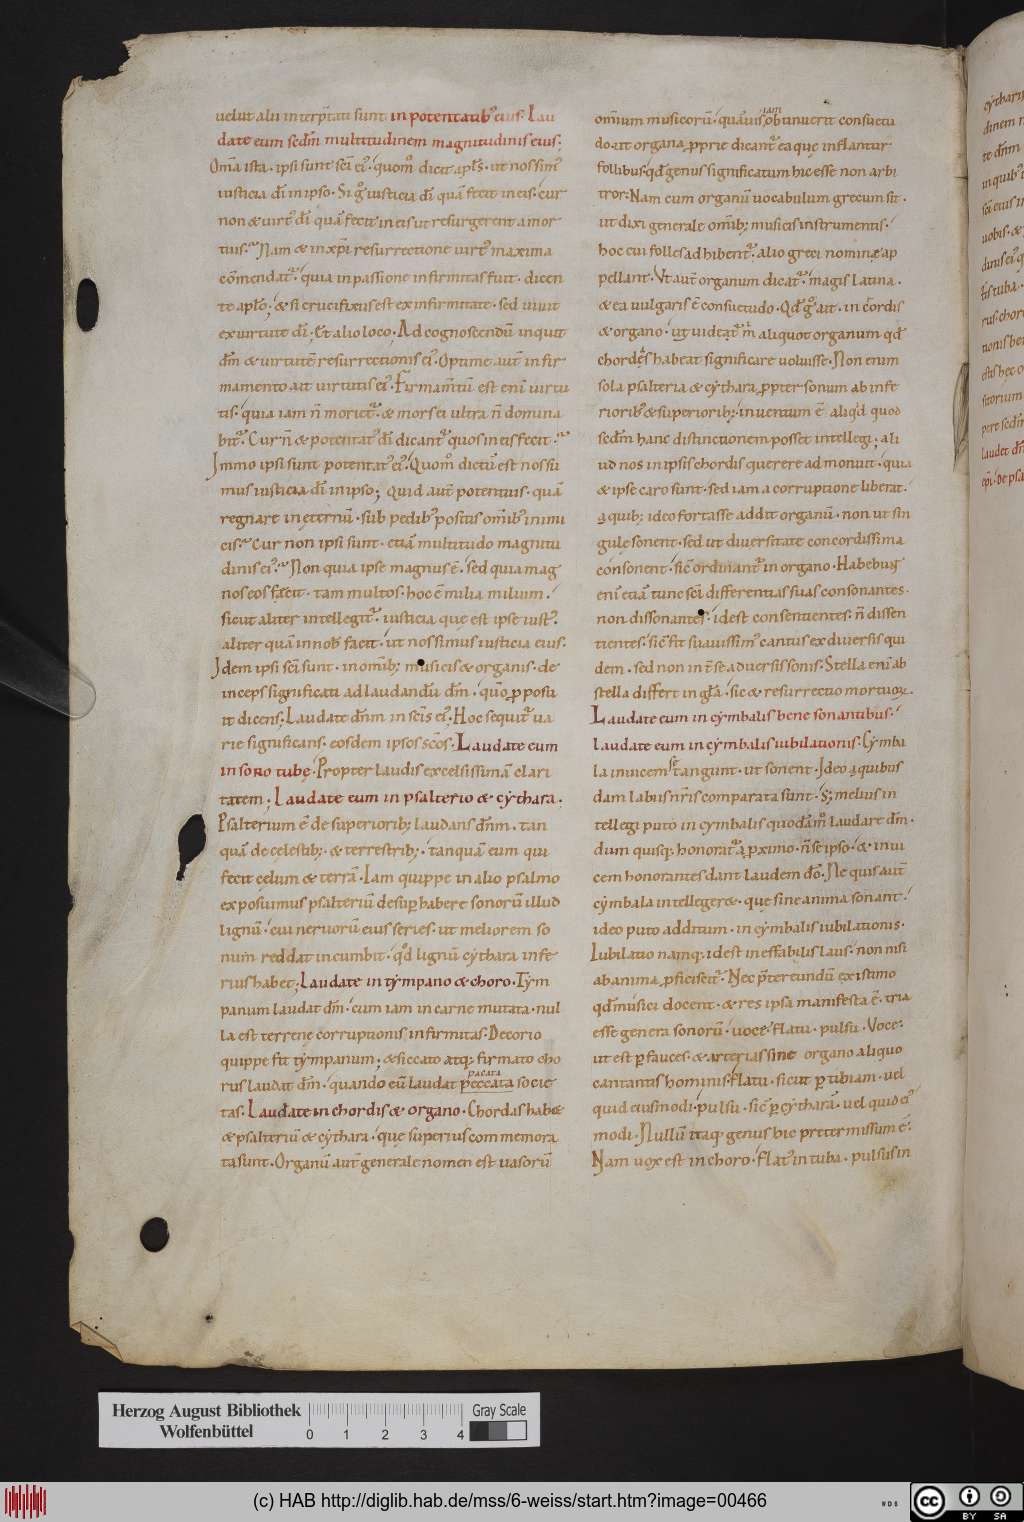 uelut alii interp̄tati sunt in potentatib' eius. Lau
date eum sedm̄ multitudinem magnitudinis eius;
Om̄a ista. ipsi sunt sc̄i ei'. quom̊ dicit apl̄s. ut nos sim'
iusticia dī in ipso. Si g̊ iusticia dī quā fecit in eis. cur
non & uirt' dī quā fecit in eis ut resurgerent a mor
tuis. Nam & in xp̄i resurrectione uirt' maxima
cōmendat'. quia in passione infirmitas fuit. dicen
te apl̄o. & si crucifixus est ex infirmitate. sed uiuit
ex uirtute dī. Et alio loco. Ad cognoscendū inquit
dm̄ & uirtutē resurrectionis ei'. Optime aut̄ in fir
mamento ait uirtutis ei'. Firmam̄tū est eni uirtu
tis. quia iam n̄ moriet'. & mors ei ultra n̄ domina
bit'. Cur n̄ & potentat' dī dicant' quos in eis fecit.
Immo ipsi sunt potentat' ei'. Quom̊ dictū est nos su
mus iusticia dī in ipso; Quid aut̄ potentius. quā
regnare in ęternū. sub pedib' positis om̄ib' inimi
cis. Cur non ipsi sunt. etiā multitudo magnitu
dinis ei'. Non quia ipse magnus ē. sed quia mag
nos eos fecit. tam multos. hoc ē milia milium.
sicut aliter intellegit'. iusticia que est ipse iust'.
aliter quā in nob̄ facit. ut nos simus iusticia eius.
Idem ipsi sc̄i sunt. in om̄ib; musicis & organis. de
inceps significati ad laudandū dm̄. quō p̱posu
it dicens; Laudate dn̄m in sc̄is ei'. Hoc sequit' ua
rie significans. eosdem ipsos sc̄os. Laudate eum
in sono tubę. Propter laudis excelsissimā clari
tatem; Laudate eum in psalterio & cythara.
Psalterium ē de superiorib; laudans dn̄m. tan
quā de cęlestib;. & terrestrib;. tanquā eum qui
fecit cęlum & terrā. Iam quippe in alio psalmo
exposuimus psalteriū desup̱ habere sonorū illud
lignū. cui neruorū eius series. ut meliorem so
num reddat incumbit. qd̄ lignū cythara infe
rius habet; Laudate in tympano & choro. Tym
panum laudat dm̄. cum iam in carne mutata. nul
la est terrenę corruptionis infirmitas. De corio
quippe fit tympanum; & siccato atq; firmato cho
rus laudat dm̄. quando eū laudat peccata socie
pacata
tas. Laudate in chordis & organo. Chordas hab&
& psalteriū & cythara. quę superius commemora
ta sunt. Organū aut̄ generale nomen est uasorū
omnium musicorū. quāuis obtinuerit consuetu
iam
do. ut organa p̱prie dicant' ea quę inflantur
follibus. qd̄ genus significatum hic esse non arbi
tror. Nam cum organū uocabulum grecum sit.
ut dixi generale om̄ib; musicis instrumentis.
hoc cui folles adhibent'. alio greci nomine ap
pellant. Vt aut̄ organum dicat'. magis latina.
& ea uulgaris ē consuetudo. Qd̄ g̊ ait. in c̄ordis
& organo. ut uideat' m̄ aliquot organum qd̄
chordęs habeat significare uoluisse. Non enim
sola psalteria & cythara p̱pter sonum ab infe
riorib' & superiorib; inuentum ē aliqd quod
sedm̄ hanc distinctionem posset intellegi; ali
ud nos in ipsis chordis querere admonuit. quia
& ipse caro sunt. sed iam a corruptione liberat.
a quib; ideo fortasse addit organū. non ut sin
gulę sonent. sed ut diuersitate concordissima
consonent. sic̄ ordinant' in organo. Habebunt
eni etiā tunc sc̄i differentias suas consonantes.
non dissonantes. id est consentientes. n̄ dissen
tientes. sic̄ fit suauissim' cantus ex diuersis qui
dem. sed non int̄ se aduersis sonis. Stella eni ab
stella differt in gl̄a. sic & resurrectio mortuoꝝ.
Laudate eum in cymbalis bene sonantibus.
laudate eum in cymbalis iubilationis. Cymba
la inuicem tangunt. ut sonent. Ideo a quibus
se
dam labiis nr̄is comparata sunt. S; melius in
tellegi puto in cymbalis quodām laudare dm̄.
dum quisq; honorat' a p̱ximo. n̄ se ipso. & inui
cem honorantes dant laudem dō. Ne quis aut̄
cymbala intelleger&. quę sine anima sonant.
ideo puto additum. in cymbalis iubilationis.
Iubilatio namq; id est ineffabilis laus. non nisi
ab anima p̱ficiscit'. Nec p̄tereundū existimo
qd̄ musici docent. & res ipsa manifesta ē. tria
esse genera sonorū. uoce. flatu. pulsu. Voce.
ut est p̱ fauces. & arterias sine organo aliquo
cantantis hominis. flatu. sicut p̱ tibiam. uel
quid eiusmodi. pulsu. sic̄ p̱ cytharā. uel quid ei'
modi. Nullū itaq; genus hic preter missum ē.
Nam uox est in choro. flat' in tuba. pulsus in
Herzog August Bibliothek
Wolfenbüttel
0 1 2 3 4
Gray Scale
(c) HAB http://diglib.hab.de/mss/6-weiss/start.htm?image=00466
cc BY SA